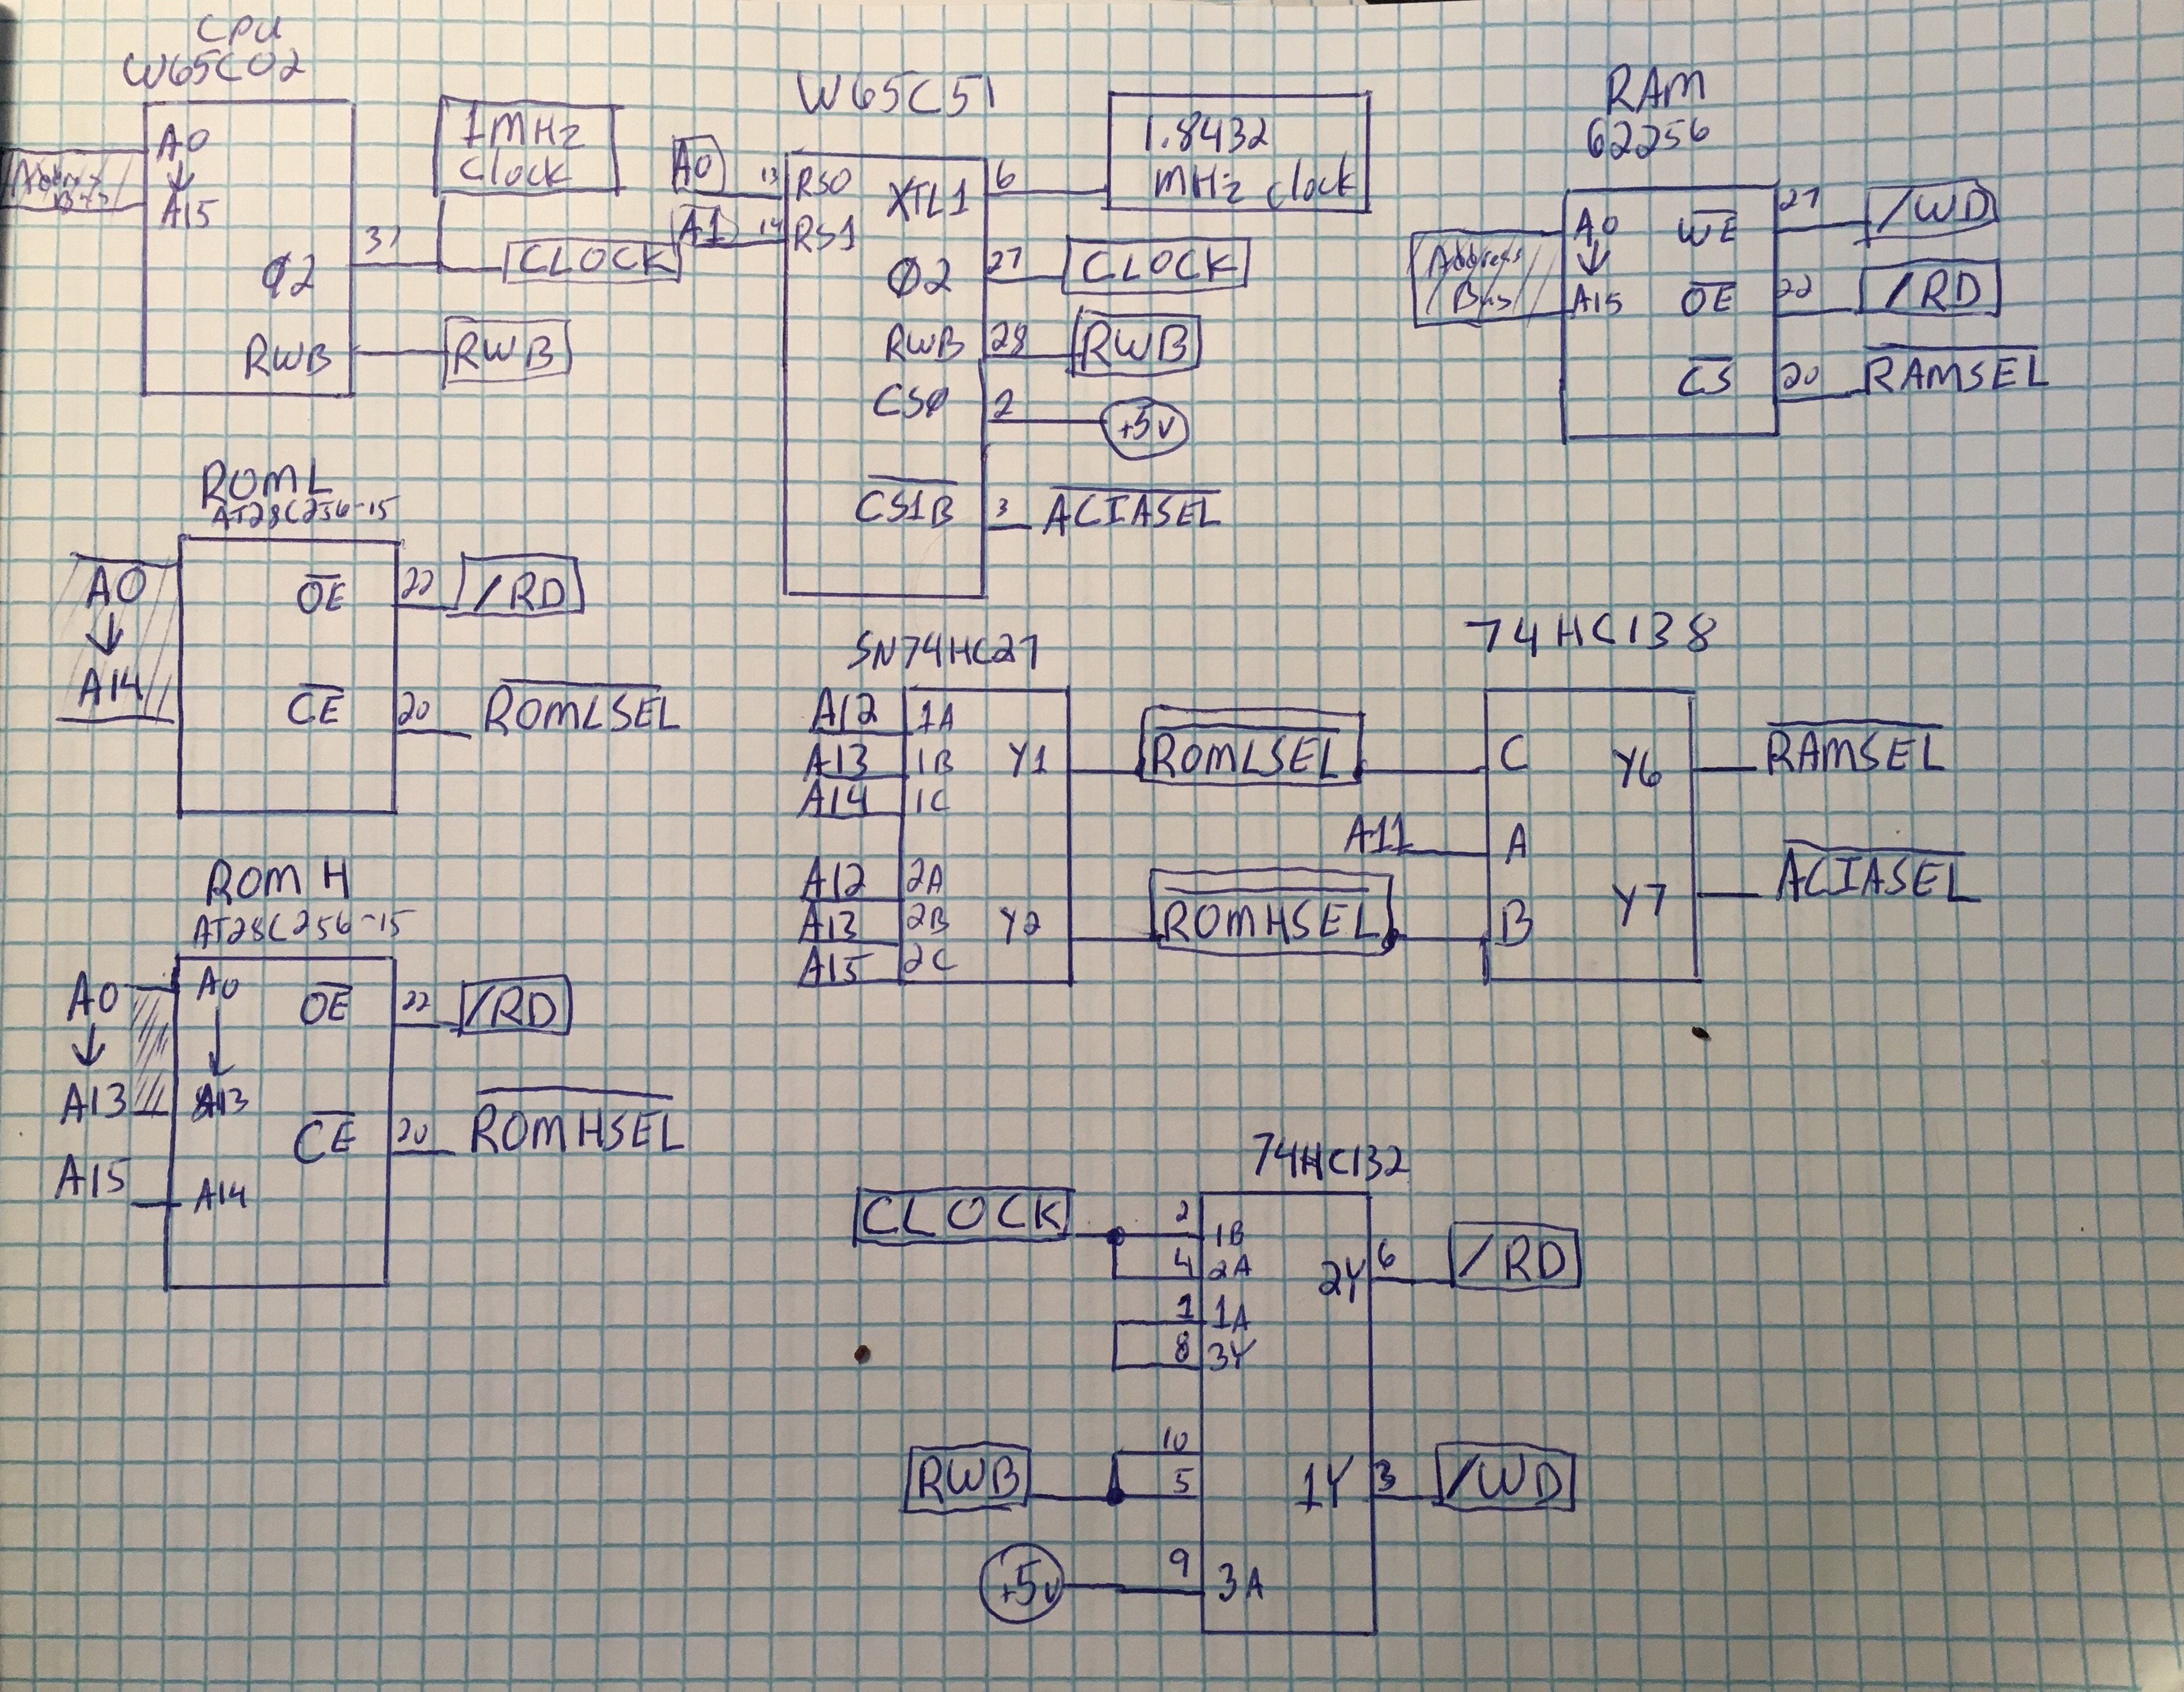 CPU
W65C02
A0
A15
Address
Φ2
RWB
37
1MHz
Clock
CLOCK
RWB
W65C51
A0
A1
13
14
RS0
RS1
XTL1
Φ2
RWB
CSØ
CS1B
6
27
28
2
3
1.8432
MHz clock
CLOCK
RWB
+5V
ACIASEL
RAM
62256
Address
Bus
A0
A15
WE
OE
CS
27
22
20
/WD
/RD
RAMSEL
ROML
AT28C256-15
A0
A14
OE
CE
22
20
/RD
ROMLSEL
SN74HC27
A12
A13
A14
1A
1B
1C
Y1
A12
A13
A15
2A
2B
2C
Y2
ROMLSEL
ROMHSEL
74HC138
A11
C
A
B
Y6
Y7
RAMSEL
ACIASEL
ROM H
AT28C256-15
A0
A13
A15
A0
A13
A14
OE
CE
22
20
/RD
ROMHSEL
74HC132
CLOCK
2
4
1
8
1B
2A
1A
3Y
2Y
6
/RD
RWB
10
5
1Y
3
/WD
+5V
9
3A